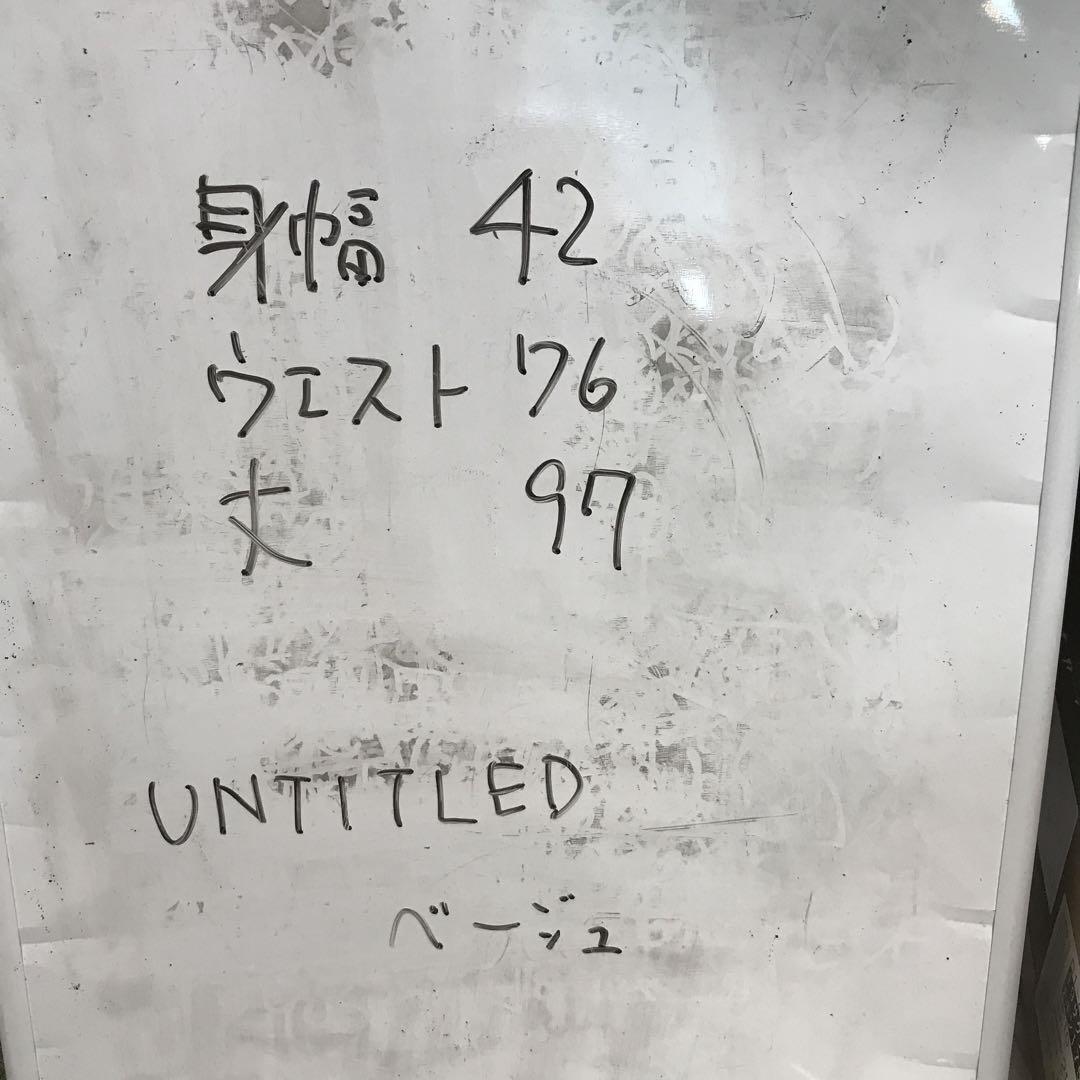 身幅 42
ウエスト 76
丈 97
UNTITLED
ベージュ